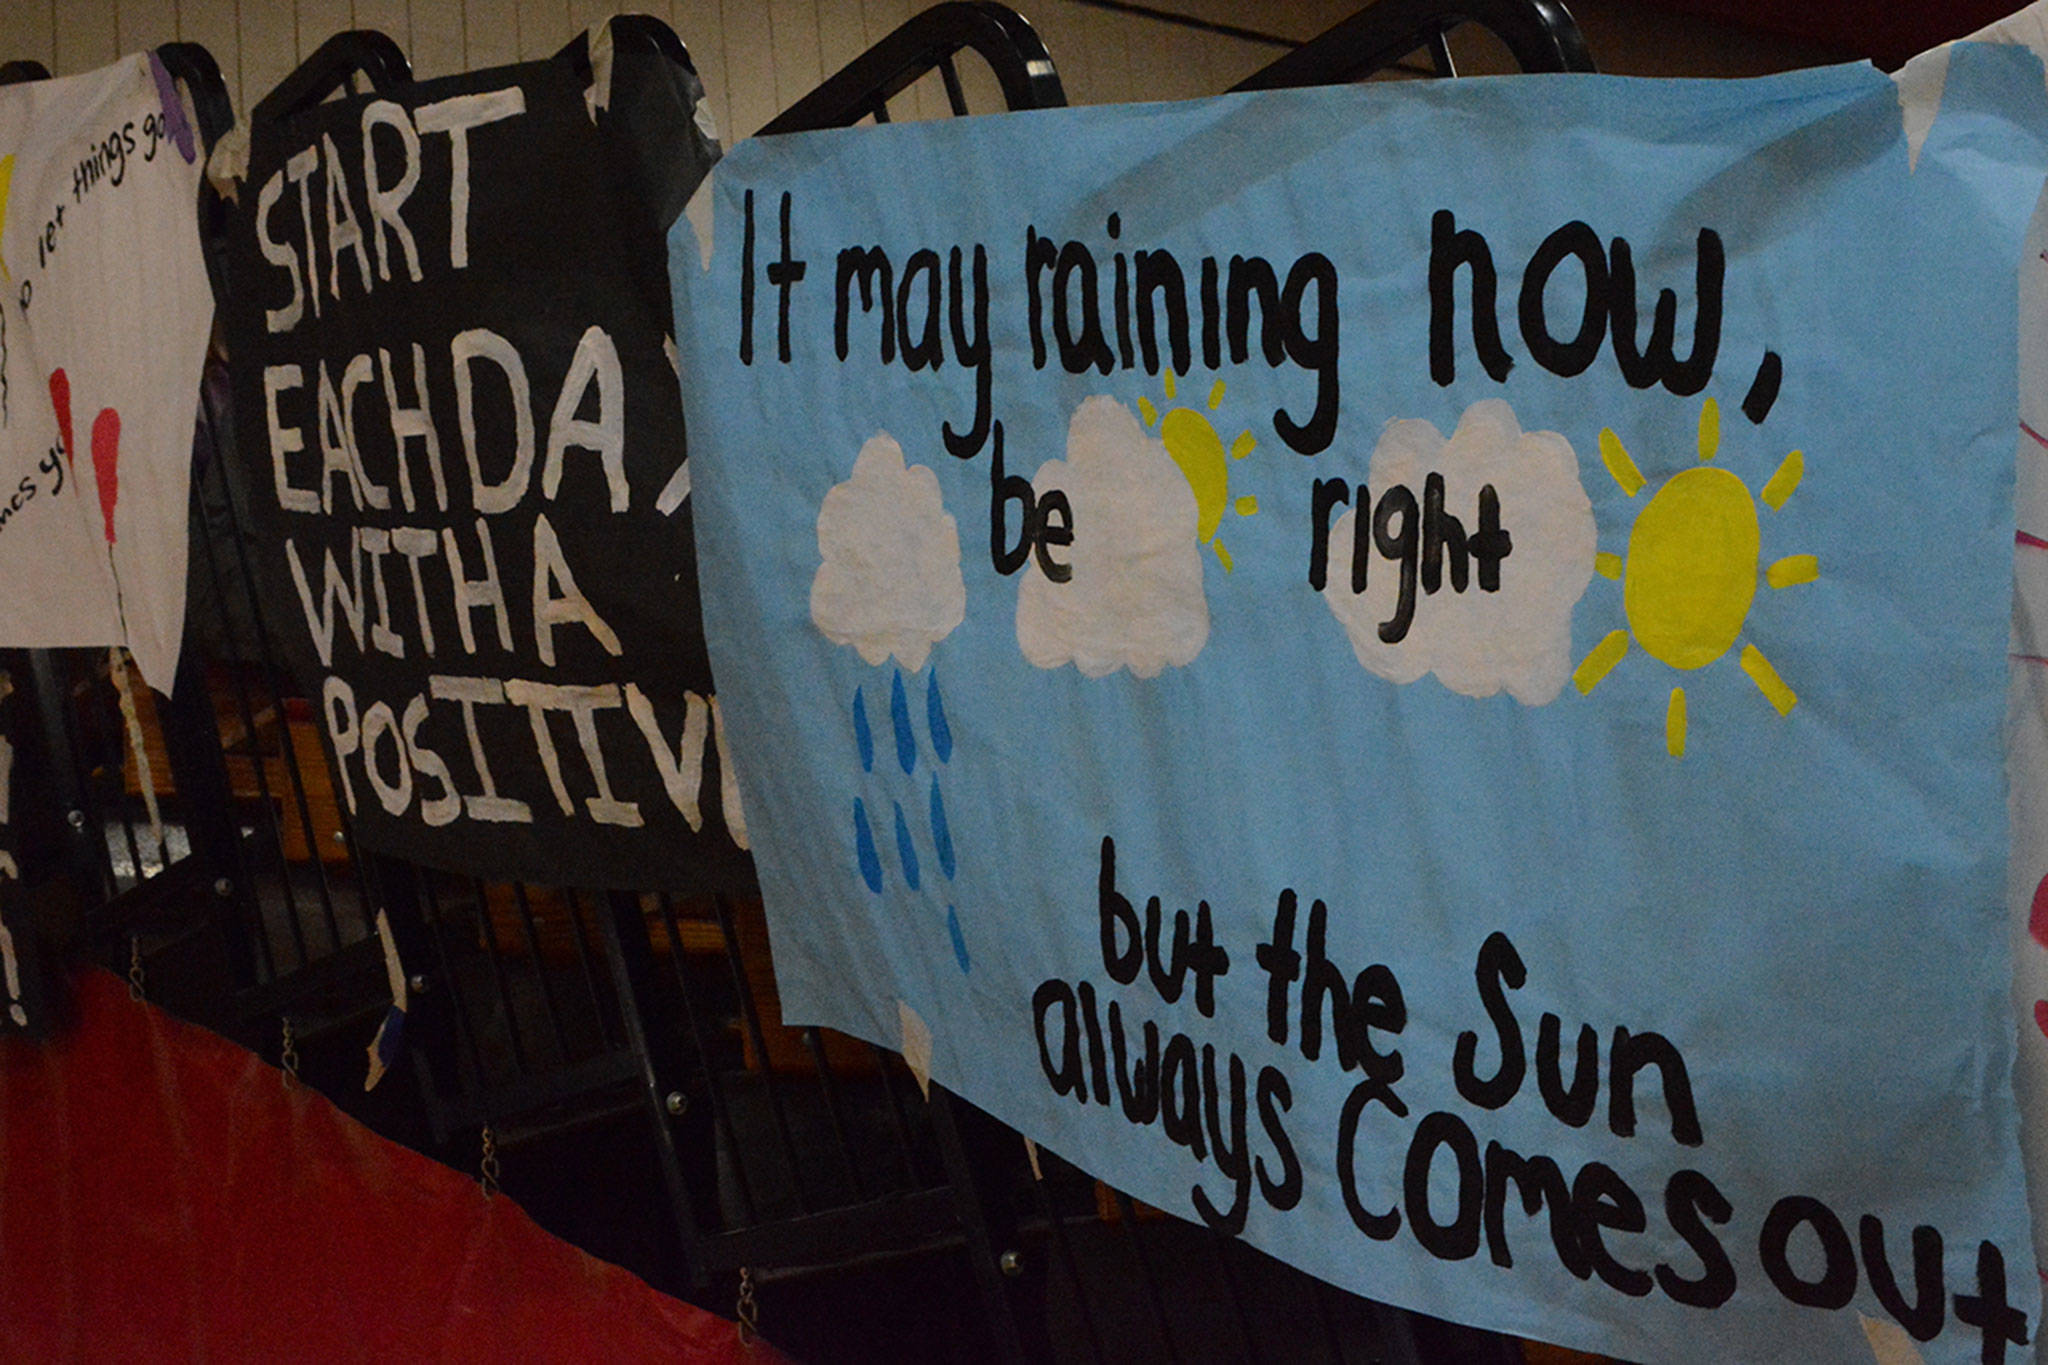 let things go
START
EACH DAY
WITH A
POSITIV
It may raining now,
be right
but the Sun
always Comes out